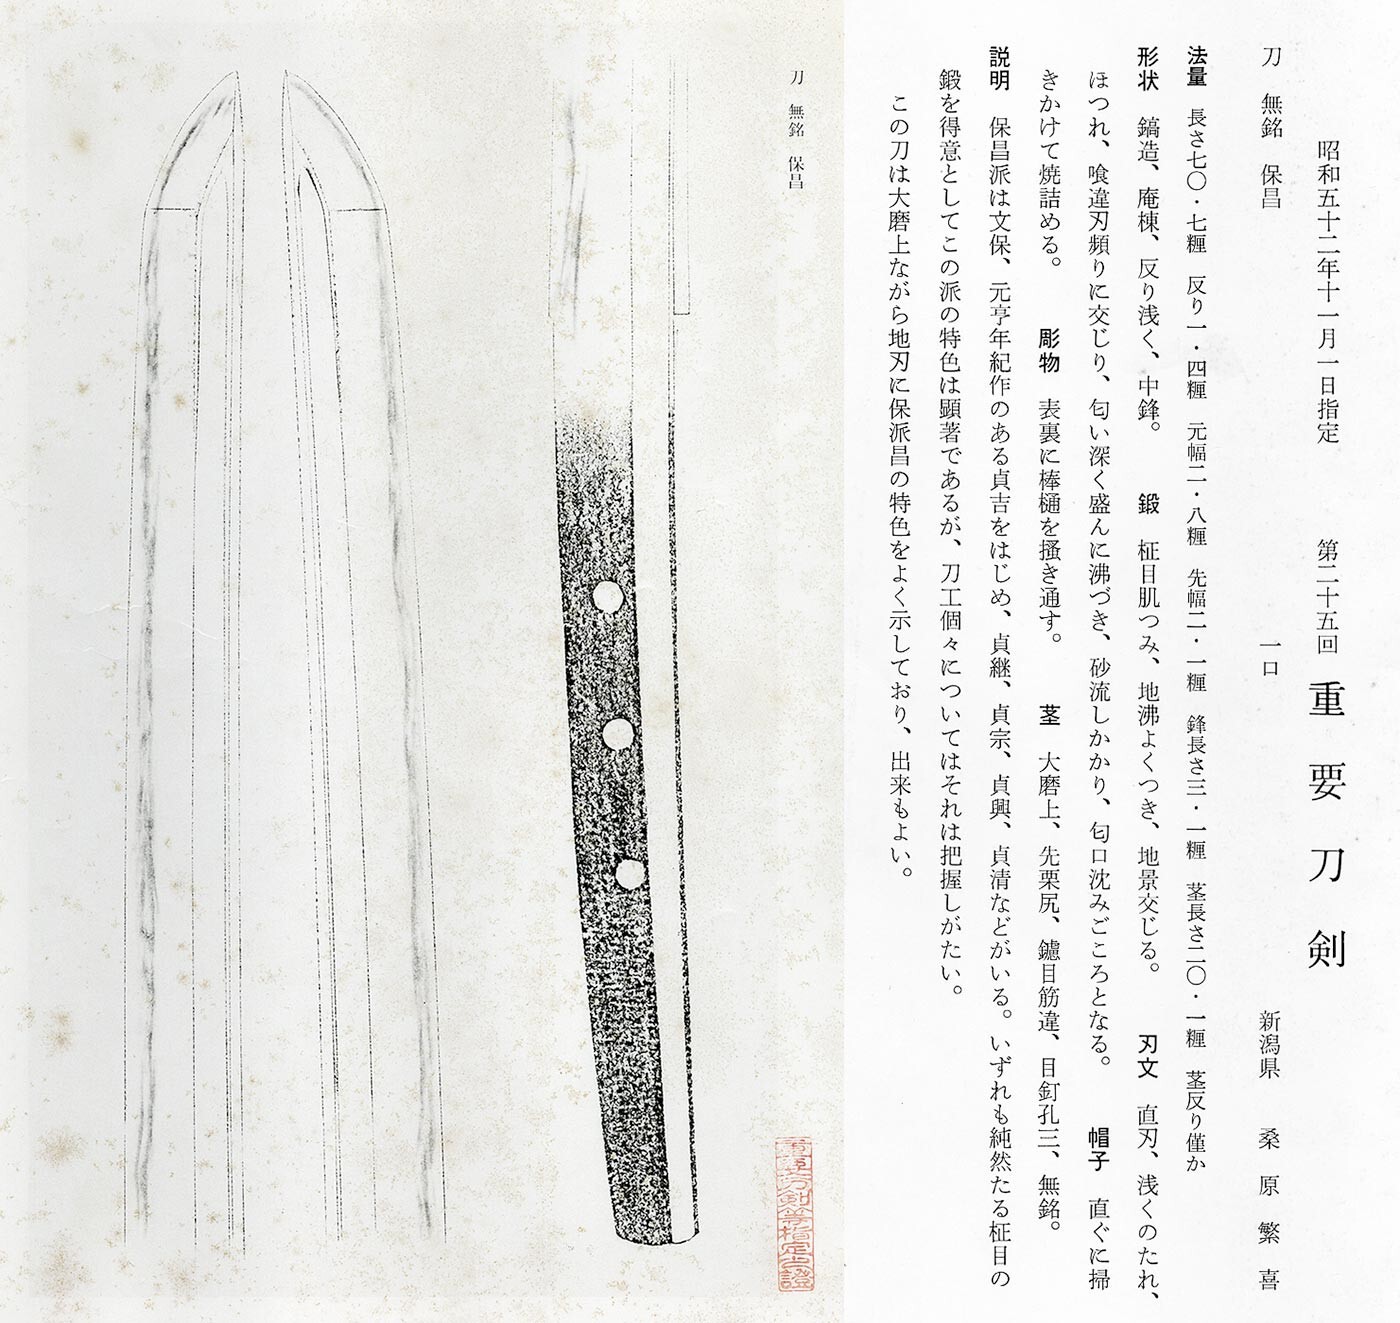 昭和五十二年十一月一日指定　第二十五回　重要刀剣
刀　無銘　保昌　一口　新潟県　桑原繁喜
法量　長さ七〇・七糎　反り一・四糎　元幅二・八糎　先幅二・一糎　鋒長さ三・一糎　茎長さ二〇・一糎　茎反り僅か
形状　鎬造、庵棟、反り浅く、中鋒。　鍛　柾目肌つみ、地沸よくつき、地景交じる。　刃文　直刃、浅くのたれ、
ほつれ、喰違刃頻りに交じり、匂い深く盛んに沸づき、砂流しかかり、匂口沈みごころとなる。　帽子　直ぐに掃
きかけて焼詰める。　彫物　表裏に棒樋を掻き通す。　茎　大磨上、先栗尻、鑢目筋違、目釘孔三、無銘。
説明　保昌派は文保、元亨年紀作のある貞吉をはじめ、貞継、貞宗、貞興、貞清などがいる。いずれも純然たる柾目の
鍛を得意としてこの派の特色は顕著であるが、刀工個々についてはそれは把握しがたい。
この刀は大磨上ながら地刃に保派昌の特色をよく示しており、出来もよい。
刀　無銘　保昌
重要刀剣等指定之證